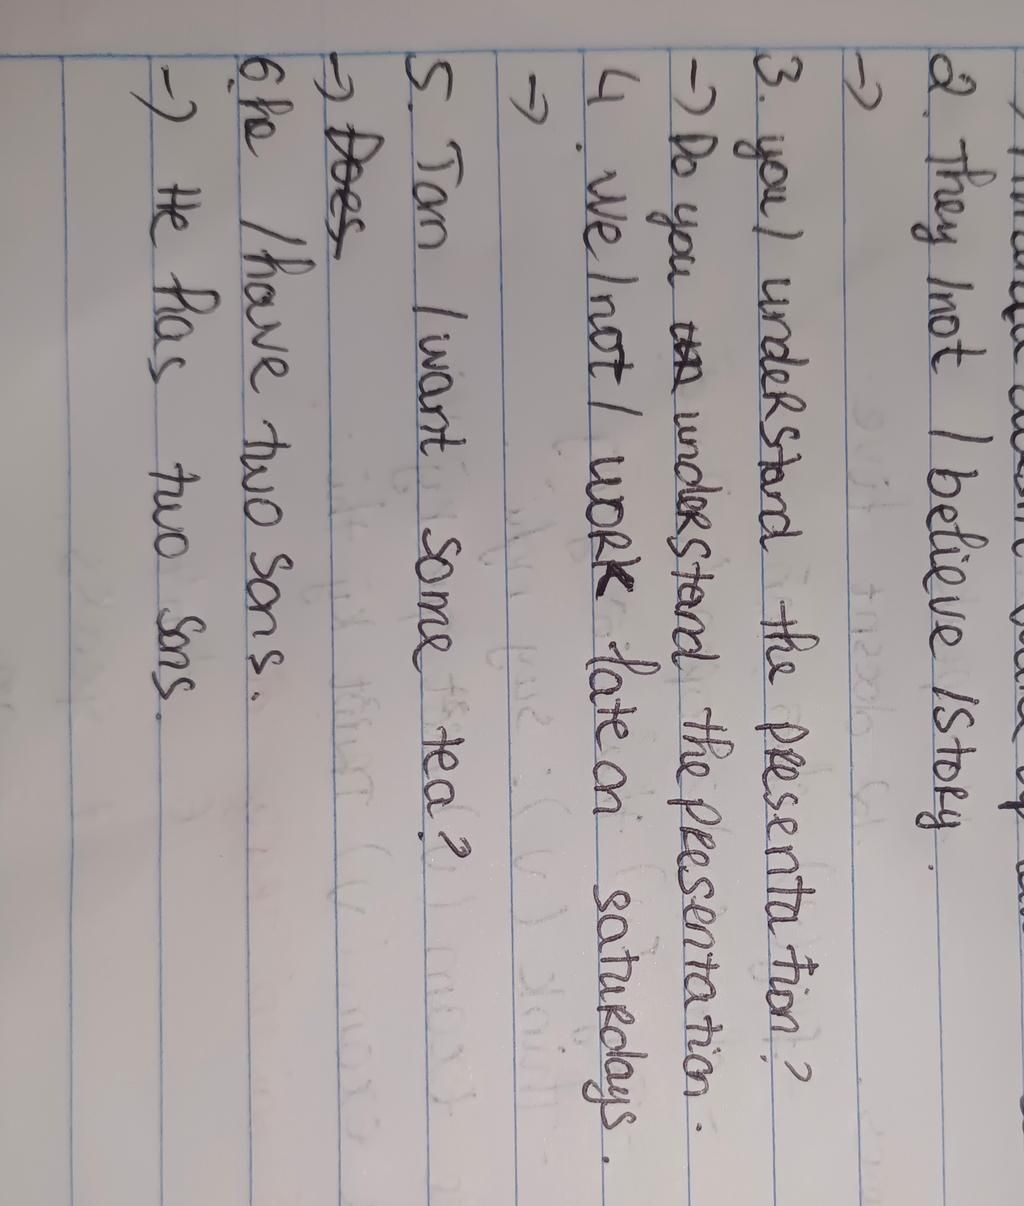 2. They /not / believe /story.
→
3. you / understand the presentation?
→ Do you understand the presentation.
4. We / not / work late on saturdays.
→
5. Tom / want some tea?
→ Does
6. he / have two sons.
→ He has two sons.